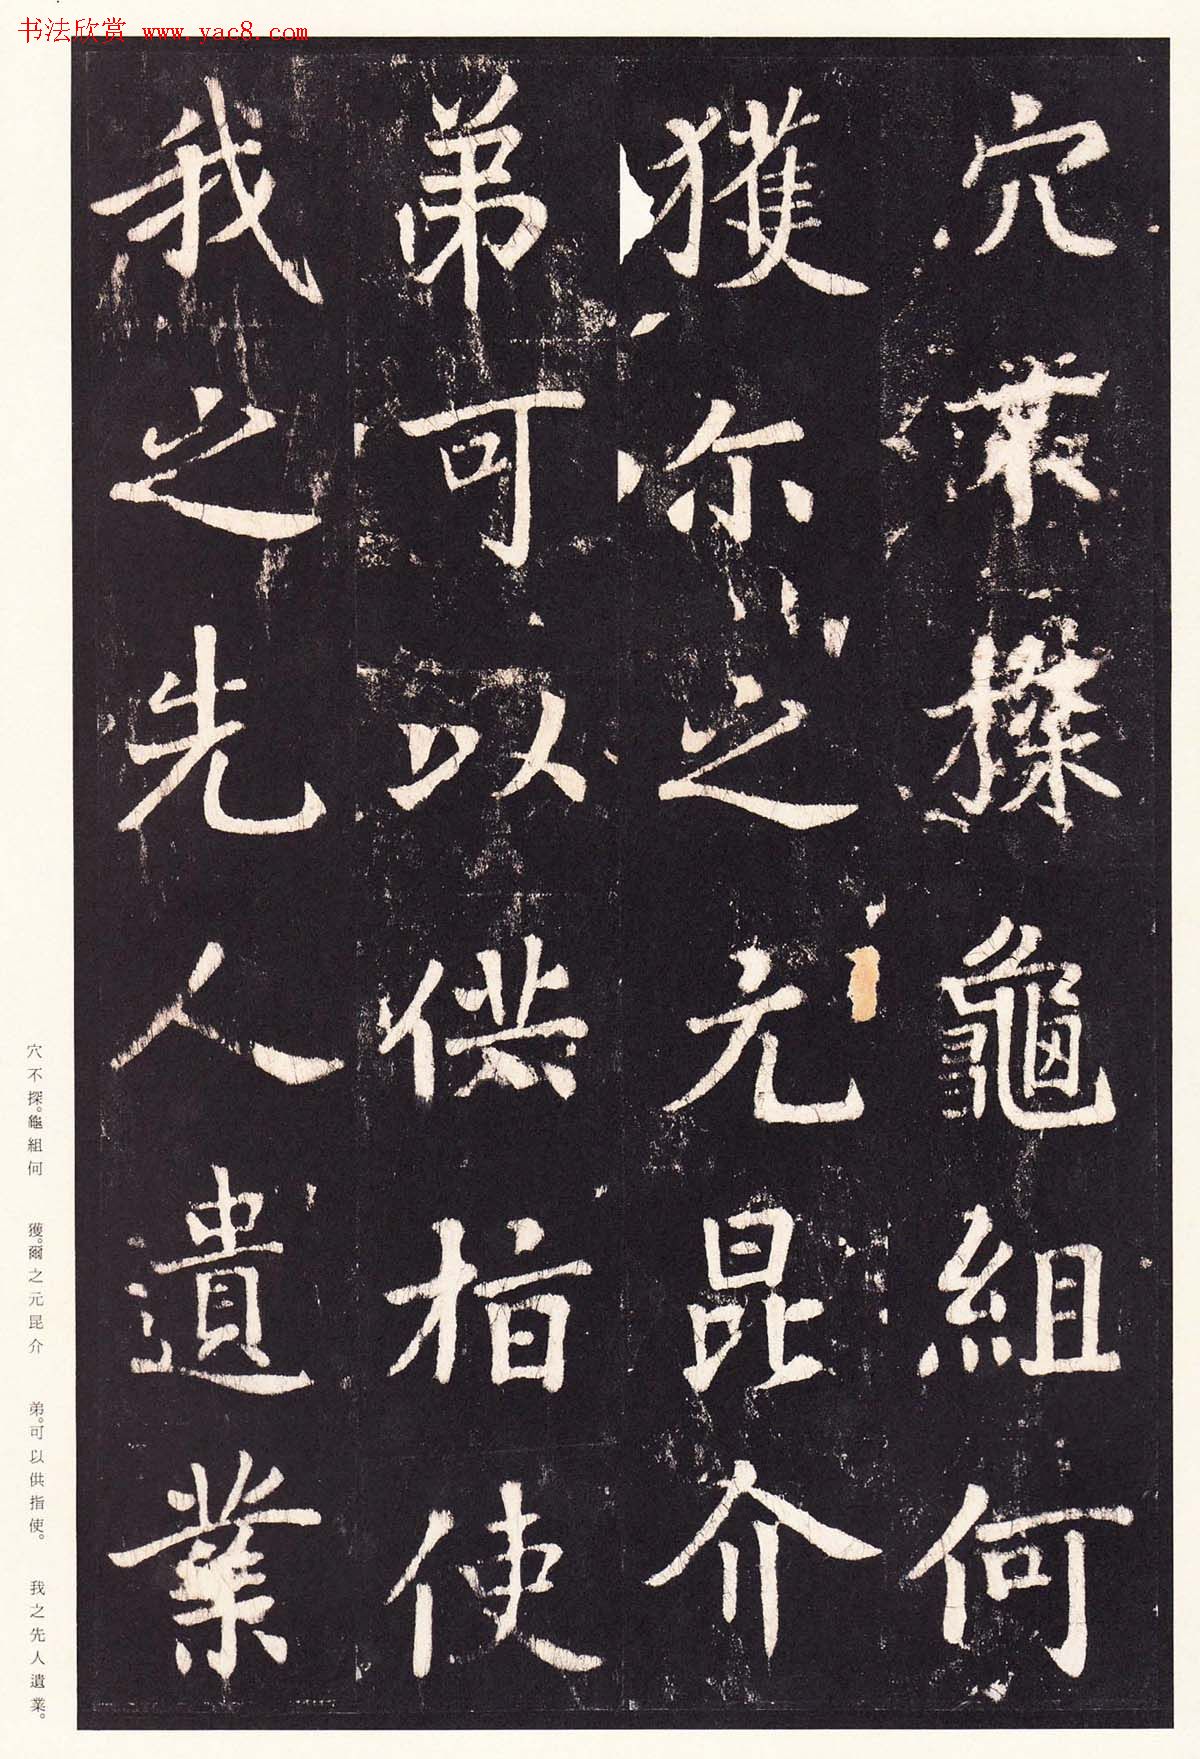 书法欣赏 www.yac8.com
穴探龜組何
獲尓之元昆介
弟可以供指使
我之先人遺業
穴不探。龜組何　獲。爾之元昆介　弟。可以供指使。　我之先人遺業。